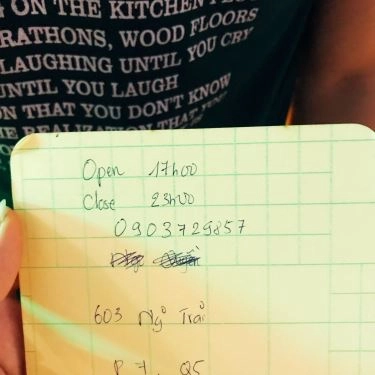 ON THE KITCHEN
RATHONS, WOOD FLOORS
LAUGHING UNTIL YOU CRY
UNTIL YOU LAUGH
ON THAT YOU DON'T KNOW
REALIZATION THAT
Open 17h00
Close 23h00
0903729857
603 Ng~ Trãi
P 7, Q5